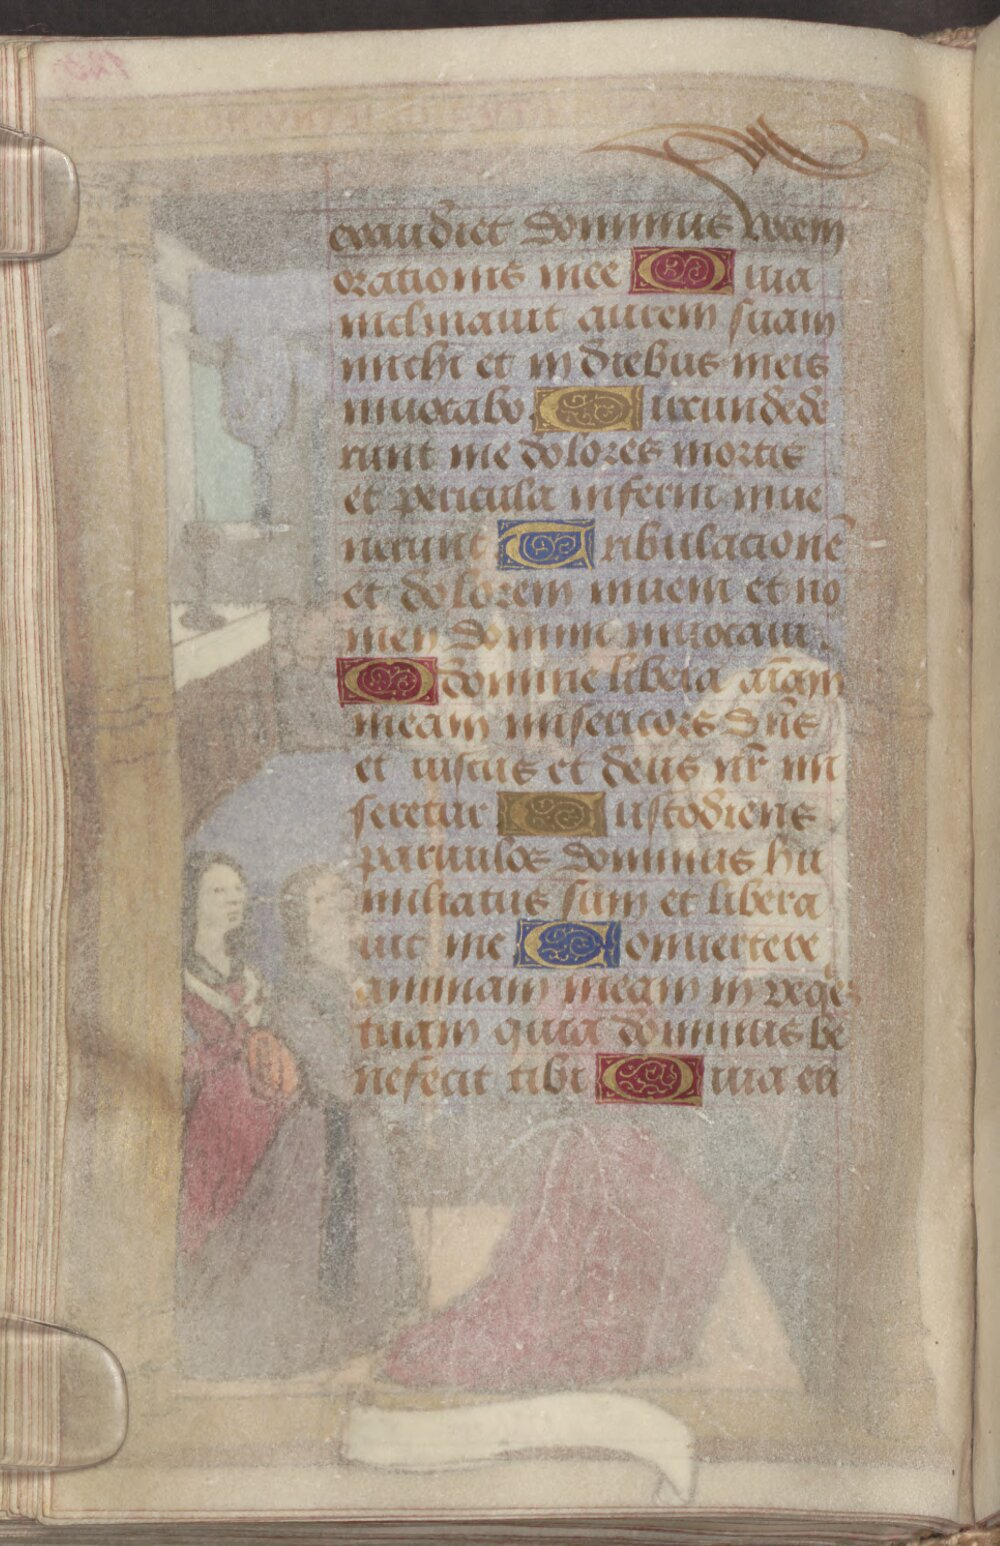 exaudiet dominus vocem
orationis mee Quia
inclinauit aurem suam
michi et in diebus meis
inuocabo Circundede
runt me dolores mortis
et pericula inferni inue
nerunt Tribulacionē
et dolorem inueni et no
men domini inuocaui
O domine libera aīam
meam misericors dn̄s
et iustus et deus nr̄ mi
seretur Custodiens
paruulos dominus hu
miliatus sum et libera
uit me Conuertere
animam meam in requiē
tuam quia dominus be
nefecit tibi Quia eri